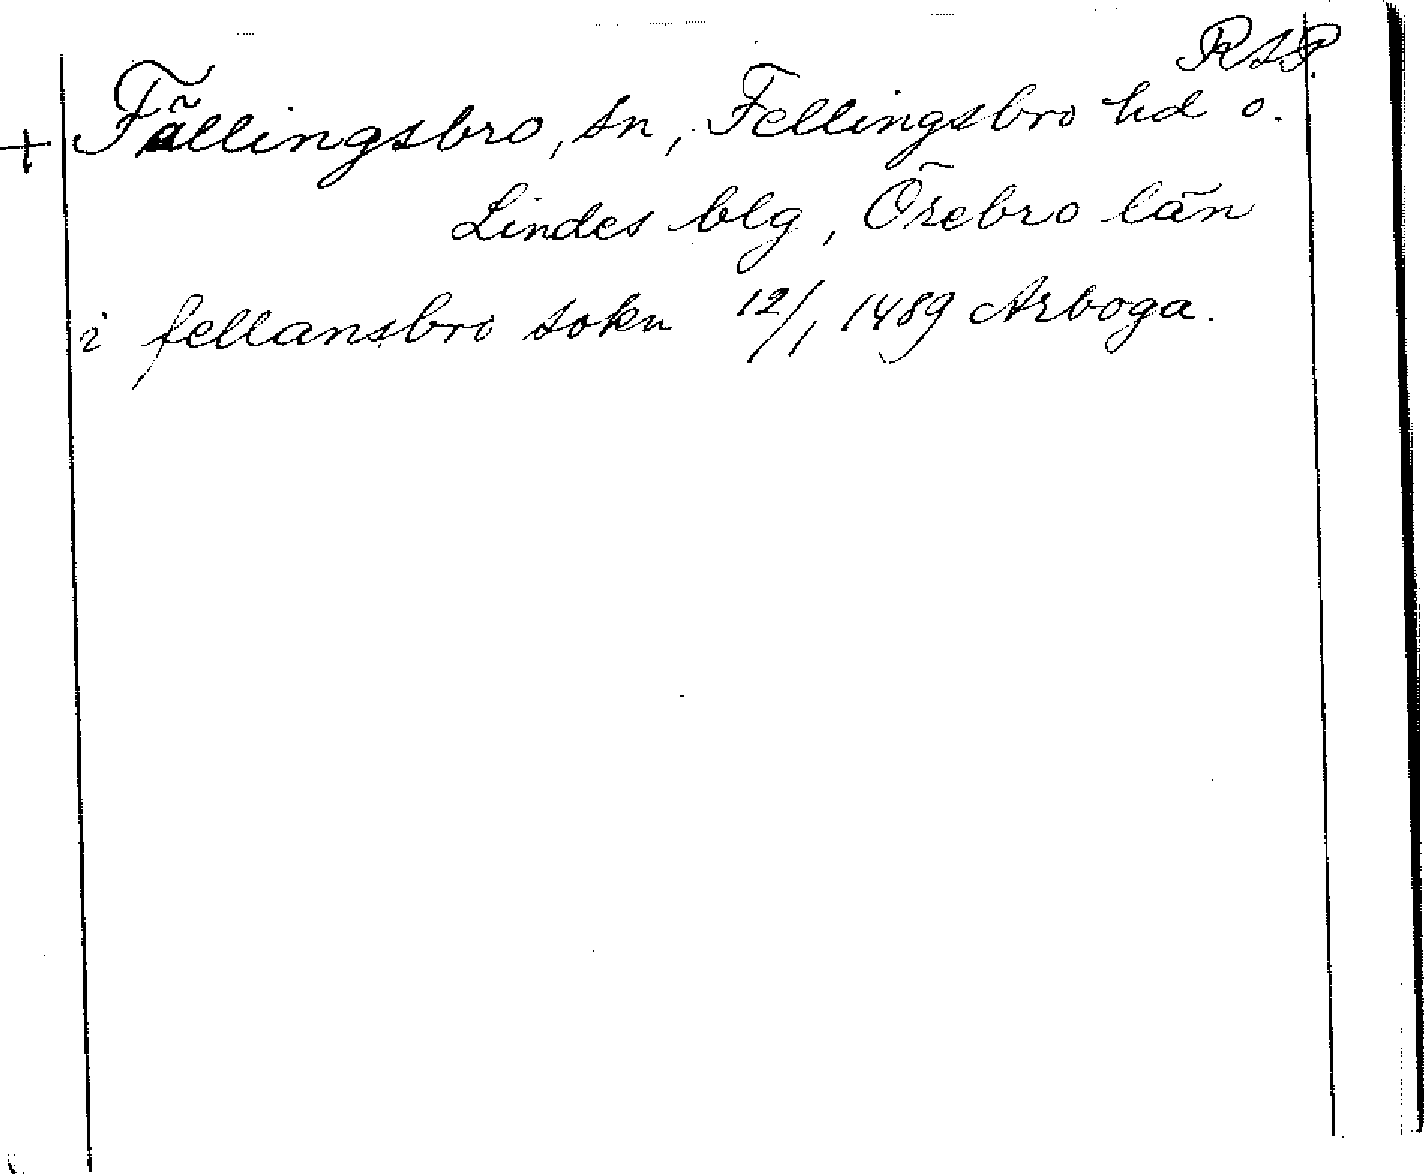 RAP.
+ Fällingsbro, sn, Fellingsbro hd o.
Lindes blg, Örebro län
i fellansbro sokn 12/1 1489 Arboga.